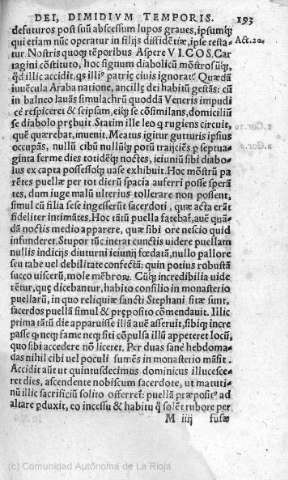 DEI, DIMIDIVM TEMPORIS. 193
defuturos post suũ abscessum lupos graues, ipsumq;
qui etiam nũc operatur in filijs diffidẽtiæ, ipse testa-
tur. Nostris quoq; tẽporibus Aspere V I. C O S. Car
tagini cõstituto, hoc signum diabolicũ mõstrosũq;,
qd illic accidit, qs illiꝰ patrię ciuis ignorat? Quædã
iuuẽcula Araba natione, ancillę dei habitũ gestãs: cũ
in balneo lauãs simulachrũ quoddã Veneris impudi
cè respiceret & seipsum, eiq; se cõsimilans, domiciliũ
se diabolo prębuit. Statim ille leo q rugiens circuit,
quẽ quærebat, inuenit. Meatus igitur gutturis ipsius
occupãs, nullũ cibũ nullũq; potũ traijciẽs p septua-
ginta ferme dies totidẽq; noctes, ieiuniũ sibi diabo-
lus ex capta possessioq; uase exhibuit. Hoc mõstrũ pa
rẽtes puellæ per tot dierũ spacia auferri posse sperã
tes, dum iuge malũ ulterius tollerare non possent,
simul cũ filia sese ingesserũt sacerdoti, quæ acta erãt
fideliter intimãtes. Hoc tãtũ puella fatebaꞇ̃, auẽ quã
dã noctis medio apparere, quæ sibi ore nescio quid
infunderet. Stupor tũc inerat cunctis uidere puellam
nullis indicijs diuturni ieiunij fœdatã, nullo pallore
seu tabe uel debilitate confectã: quin potius robustã
succo uiscerũ, mole mẽbroꝝ. Cũq; incredibilia uide
rẽtur, quę dicebantur, habito consilio in monasterio
puellarũ, in quo reliquiæ sancti Stephani sitæ sunt,
sacerdos puellã simul & pręposito cõmendauit. Illic
prima tãtũ die apparuisse illã auẽ asseruit, sibiq; incre
passe q neq; fame neq; siti cõpulsa illũ appeteret locũ,
quo sibi accedere nõ liceret. Per duas sanè hebdoma
das nihil cibi uel poculi sumẽs in monasterio mãsit.
Accidit aũt ut quintusdecimus dominicus illucesce-
ret dies, ascendente nobiscum sacerdote, ut matuti-
nũ illic sacrificiũ solito offerreꞇ̃: puellã præpositꝰ ad
altare pduxit, eo incessu & habitu q solẽt rubore per
M iiij fusæ
Act. 20.
(c) Comunidad Autónoma de La Rioja